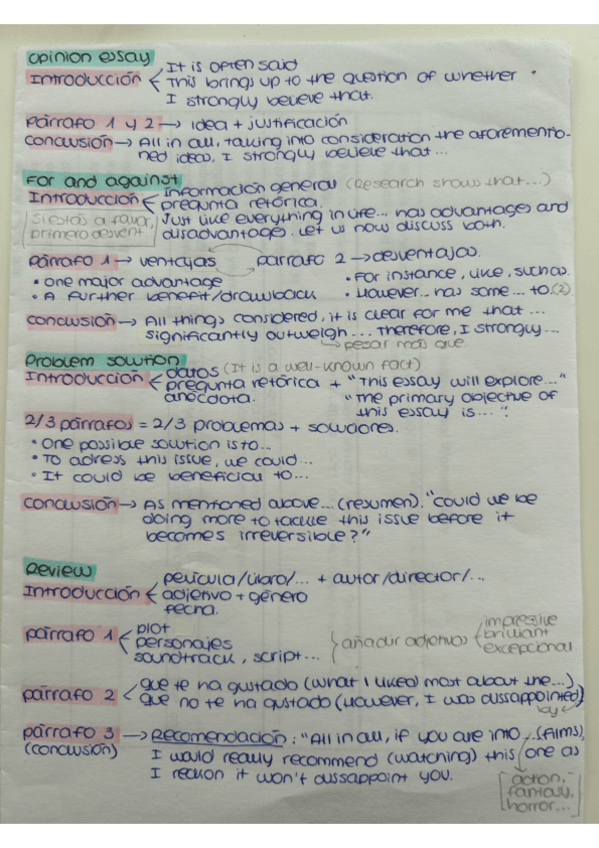 Opinion essay
Introducción < It is often said
This brings up to the question of whether
I strongly believe that.
Párrafo 1 y 2 → idea + justificación
Conclusión → All in all, taking into consideration the aforementio-
ned ideas, I strongly believe that...
For and against
Introducción < información general (Research shows that...)
pregunta retórica.
Just like everything in life... has advantages and
disadvantages. Let us now discuss both.
Si estás a favor,
primero desvent
Párrafo 1 → ventajas
• One major advantage
• A further benefit/drawback
párrafo 2 → desventajas.
• For instance, like, such as.
• However... has some... to (2)
Conclusión → All things considered, it is clear for me that ...
significantly outweigh... Therefore, I strongly...
→ pesar más que
Problem solution
Introducción < datos (It is a well-known fact)
pregunta retórica + "This essay will explore..."
anécdota. "The primary objective of
this essay is... ".
2/3 párrafos = 2/3 problemas + soluciones.
• One possible solution is to...
• To adress this issue, we could...
• It could be beneficial to...
Conclusión → As mentioned above... (resumen). "Could we be
doing more to tackle this issue before it
becomes irreversible?"
Review
Introducción < película/libro/... + autor/director/...
adjetivo + género
fecha.
Párrafo 1 < plot
personajes
soundtrack, script...
} añadir adjetivos < impressive
brilliant
excepcional
Párrafo 2 < que te ha gustado (What I liked most about the...)
que no te ha gustado (However, I was dissappointed)
by
Párrafo 3 → Recomendación: "All in all, if you are into ... (films),
(conclusión) I would really recommend (watching) this one as
I reckon it won't dissappoint you.
action,
fantasy,
horror...